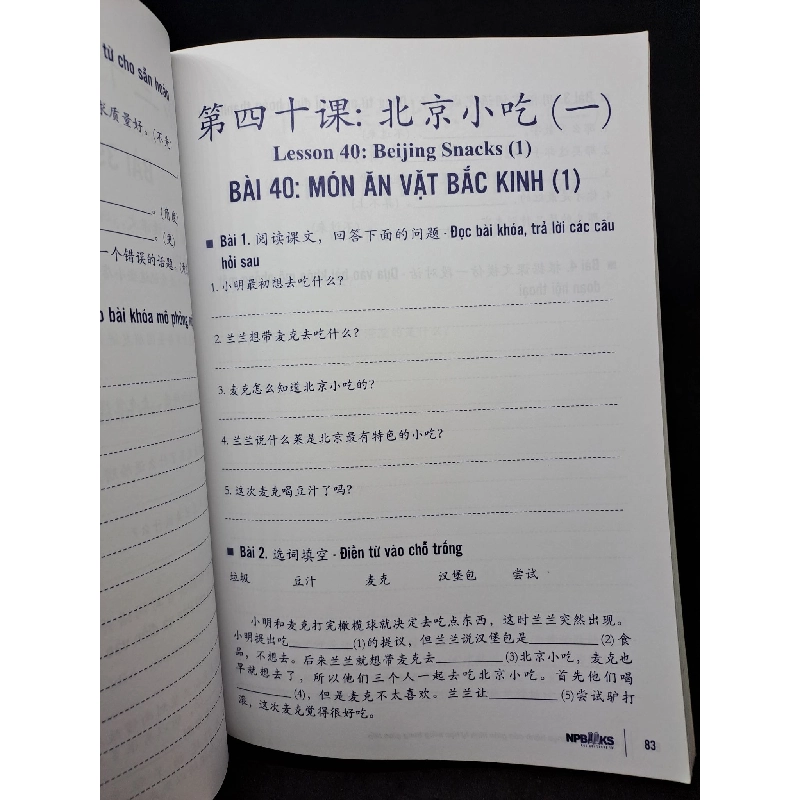 từ cho sẵn hoàn
质量好。(不免
(角度
(免)
一个错误的话题。
bài khóa mô phỏng
第四十课: 北京小吃 (一)
Lesson 40: Beijing Snacks (1)
BÀI 40: MÓN ĂN VẶT BẮC KINH (1)
Bài 1. 阅读课文，回答下面的问题 - Đọc bài khóa, trả lời các câu
hỏi sau
1. 小明最初想去吃什么?
2. 兰兰想带麦克去吃什么?
3. 麦克怎么知道北京小吃的?
4. 兰兰说什么菜是北京最有特色的小吃?
5. 这次麦克喝豆汁了吗?
Bài 2. 选词填空 - Điền từ vào chỗ trống
垃圾 豆汁 麦克 汉堡包 尝试
小明和麦克打完橄榄球就决定去吃点东西，这时兰兰突然出现。
小明提出吃__________(1)的提议，但兰兰说汉堡包是__________(2)食
品，不想去。后来兰兰就想带麦克去__________(3)北京小吃，麦克也
早就想去了，所以他们三个人一起去吃北京小吃。首先他们喝
__________(4)，但是麦克不太喜欢。兰兰让__________(5)尝试驴打
滚，这次麦克觉得很好吃。
NPBOOKS
83